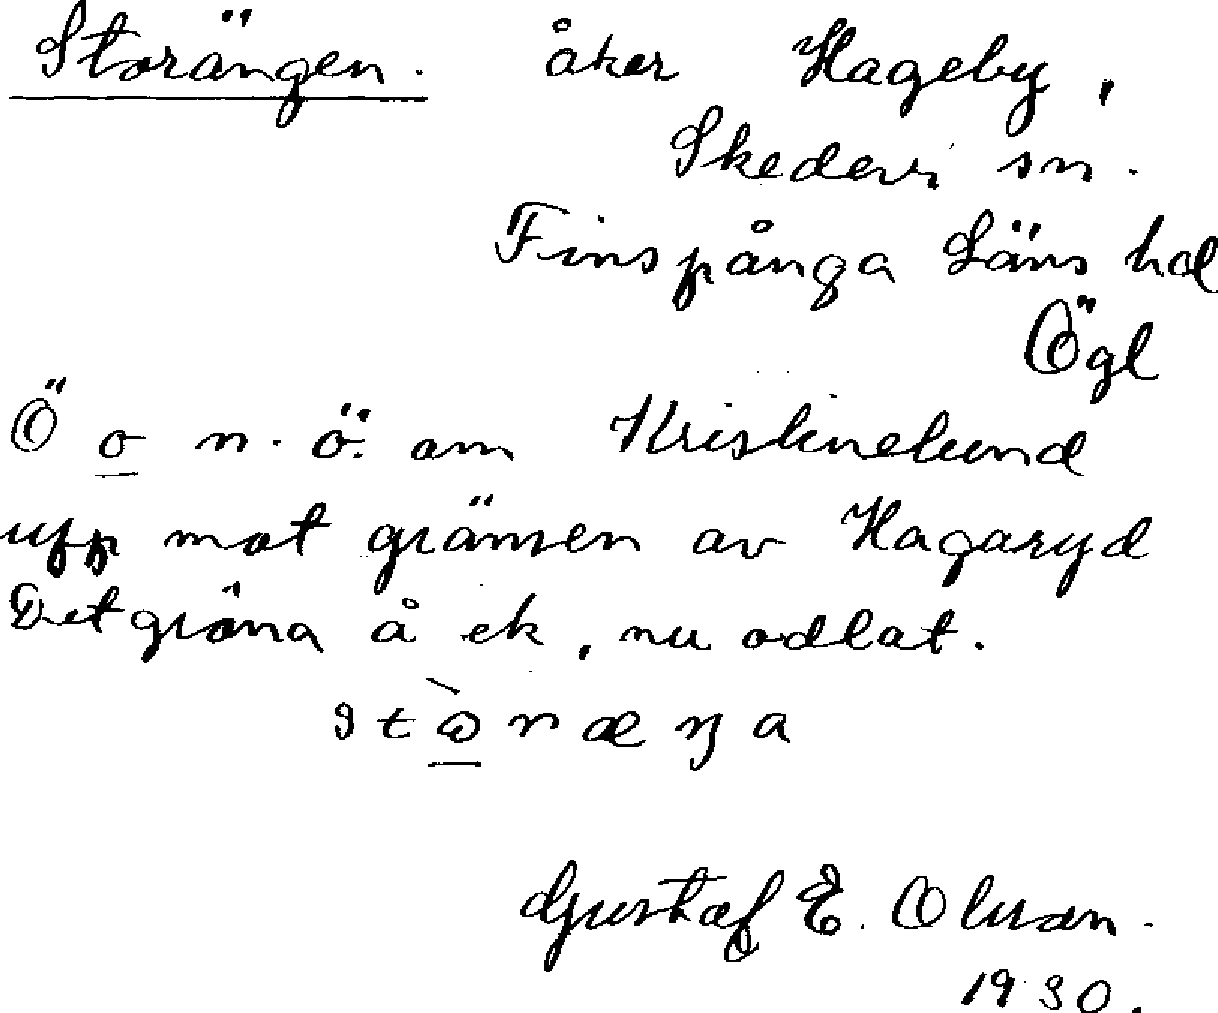 Storängen. åker Hageby,
Skedevi sn.
Finspånga Läns hd
Ögl
Ö o n.ö. om Kristinelund
upp mot gränsen av Hagaryd
Det gröna å ek, nu odlat.
stòræŋa
Gustaf E. Olsson.
1930.